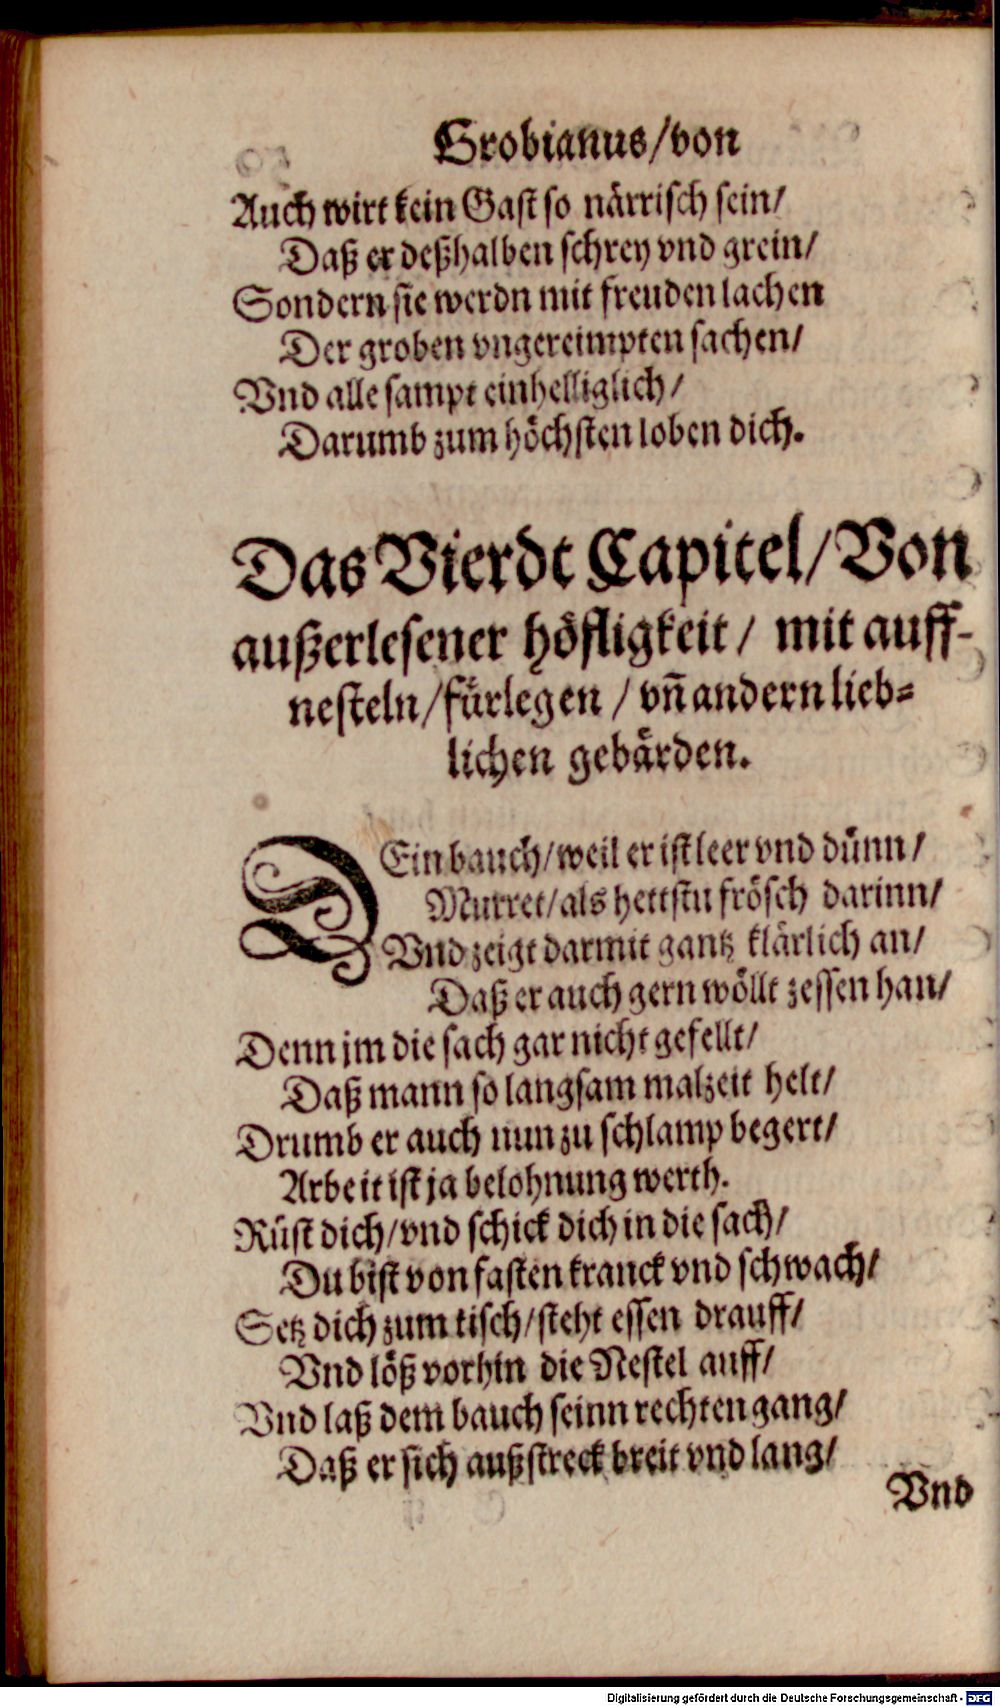 Grobianus/von
Auch wirt kein Gast so närrisch sein/
Daß er deßhalben schrey vnd grein/
Sondern sie werdn mit freuden lachen
Der groben vngereimpten sachen/
Vnd alle sampt einhelliglich/
Darumb zum höchsten loben dich.
Das Vierdt Capitel/Von
außerlesener höfligkeit/ mit auff-
nesteln/fürlegen/vn̄ andern lieb-
lichen gebärden.
DEin bauch/weil er ist leer vnd dünn/
Murret/als hettstu frösch darinn/
Vnd zeigt darmit gantz klärlich an/
Daß er auch gern wöllt zessen han/
Denn jm die sach gar nicht gefellt/
Daß mann so langsam malzeit helt/
Drumb er auch nun zu schlamp begert/
Arbeit ist ja belohnung werth.
Rüst dich/vnd schick dich in die sach/
Du bist von fasten kranck vnd schwach/
Setz dich zum tisch/steht essen drauff/
Vnd löß vorhin die Nestel auff/
Vnd laß dem bauch seinn rechten gang/
Daß er sich außstreck breit vnd lang/
Vnd
Digitalisierung gefördert durch die Deutsche Forschungsgemeinschaft - DFG